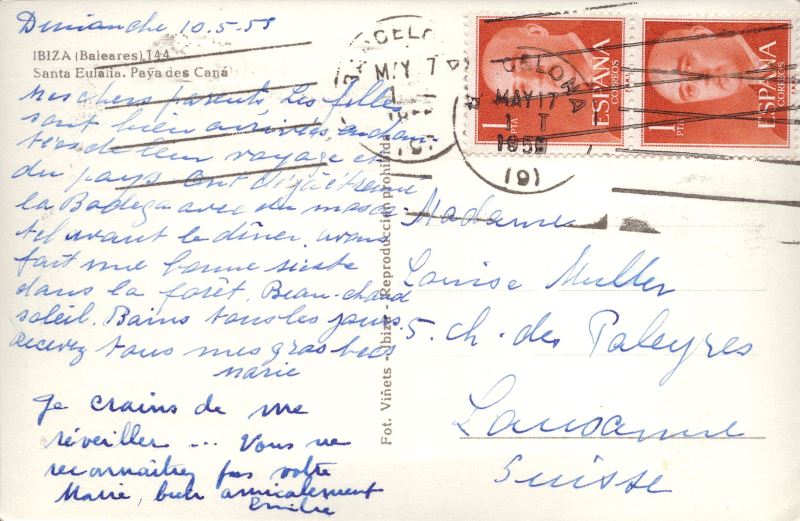 Dimanche 10-5-58
IBIZA (Baleares) 144
Santa Eulalia. Paya des Caná
Mes chers parents, Les filles
sont bien arrivées, enchan-
tées de leur voyage et
du pays. Ont déjà étrenné
la Bodega avec du musca-
tel avant le dîner. avons
fait une bonne sieste
dans la forêt. Beau-chaud
soleil. Bains tous les jours.
recevez tous mes gros becs
Marie
Je crains de me
réveiller ... Vous ne
reconnaîtrez pas votre
Marie, bien amicalement
Emilie
Fot. Viñets - Ibiza - Reproducción prohibida
BARCELONA
MAY 17
BARCELONA
MAY 17
1 T
1958
(9)
1 PTA
ESPAÑA
CORREOS
1 PTA
ESPAÑA
CORREOS
Madame
Louise Muller
5. ch. des Paleyres
Lausanne
Suisse